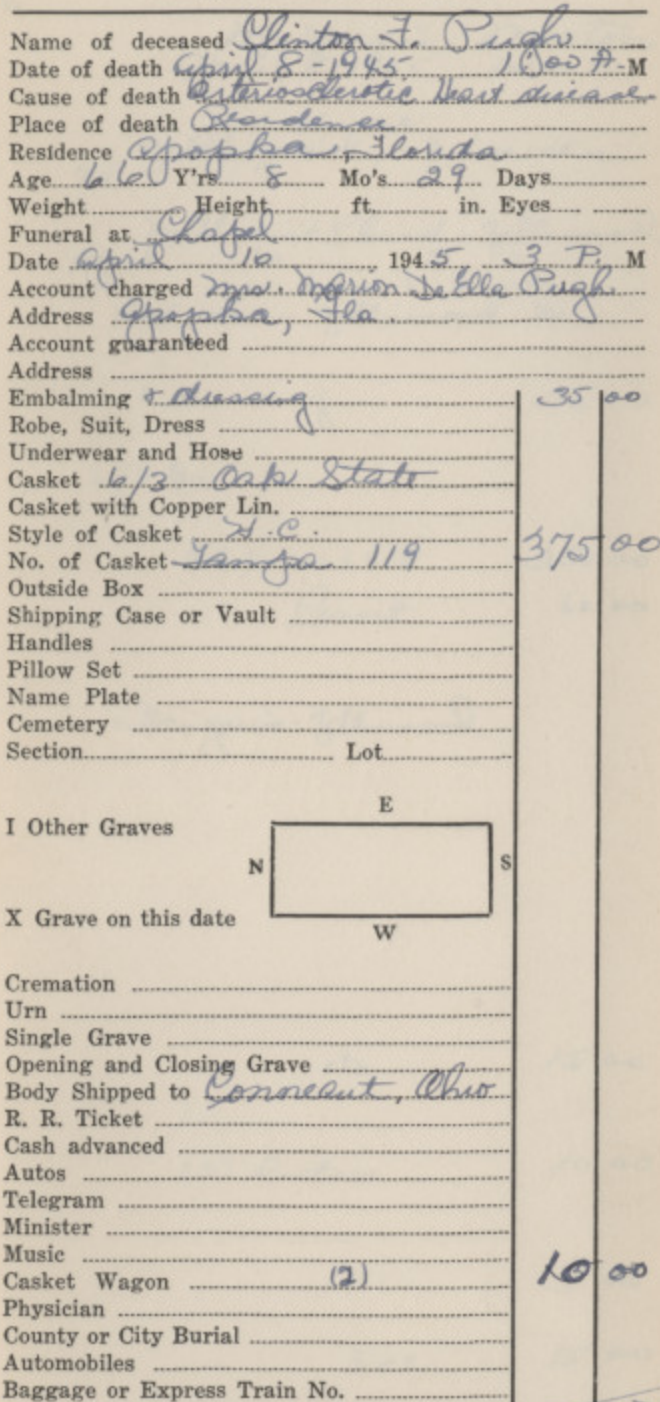 Name of deceased Clinton F. Pugh
Date of death April 8-1945 1:00 A-M
Cause of death Arteriosclerotic Heart disease
Place of death Residence
Residence Apopka, Florida
Age 66 Y'rs 8 Mo's 29 Days
Weight Height ft. in. Eyes
Funeral at Chapel
Date April 10 1945 3 P. M
Account charged Mrs. Marion Pugh
Address Apopka, Fla.
Account guaranteed
Address
Embalming & dressing 35 00
Robe, Suit, Dress
Underwear and Hose
Casket 6/3 Oak State
Casket with Copper Lin.
Style of Casket H.C.
No. of Casket Tampa 119 375 00
Outside Box
Shipping Case or Vault
Handles
Pillow Set
Name Plate
Cemetery
Section Lot
E
I Other Graves
N S
X Grave on this date
W
Cremation
Urn
Single Grave
Opening and Closing Grave
Body Shipped to Conneaut, Ohio
R. R. Ticket
Cash advanced
Autos
Telegram
Minister
Music
Casket Wagon (2) 10 00
Physician
County or City Burial
Automobiles
Baggage or Express Train No.